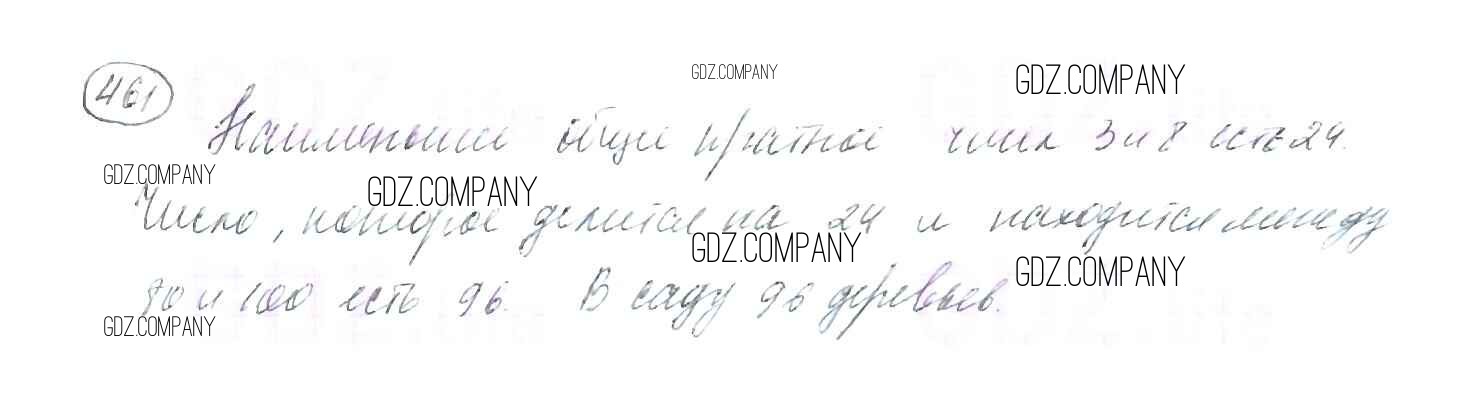 461
GDZ.COMPANY
GDZ.COMPANY
Наименьшее общее кратное чисел 3 и 8 есть 24.
GDZ.COMPANY
GDZ.COMPANY
Число, которое делится на 24 и находится между
GDZ.COMPANY
GDZ.COMPANY
80 и 100 есть 96. В саду 96 деревьев.
GDZ.COMPANY